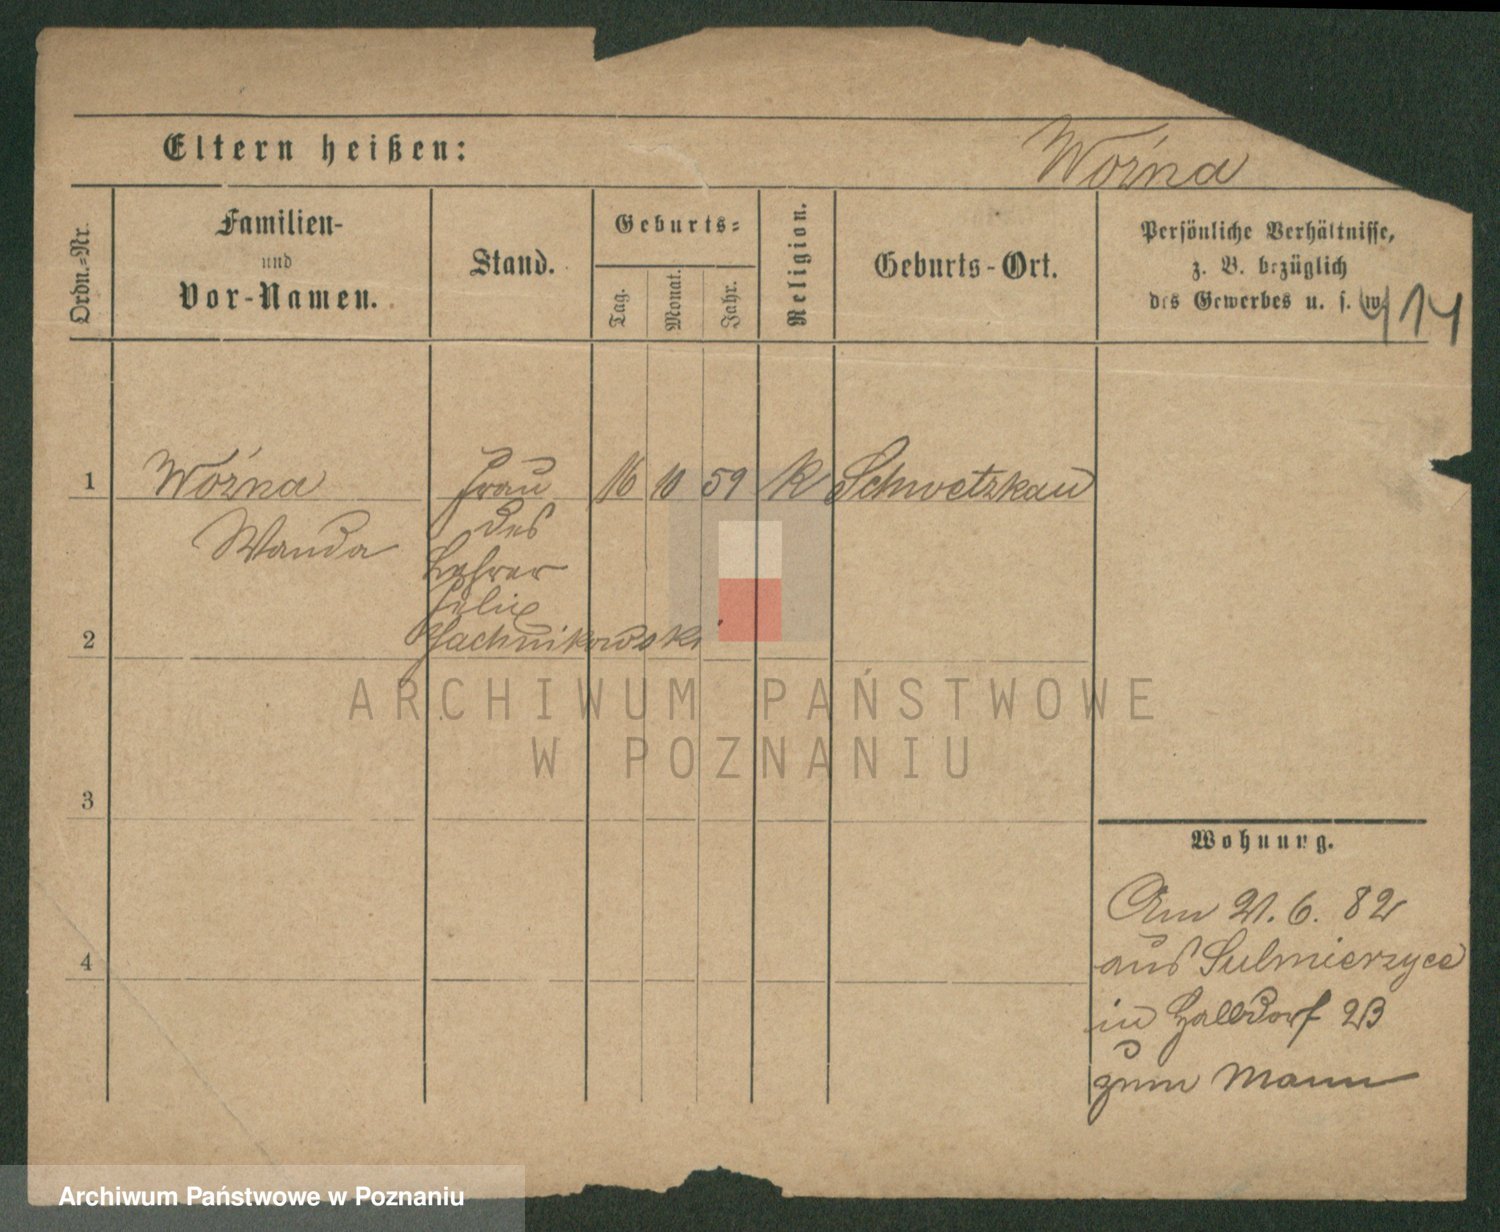 Eltern heißen:
Woźna
Ordn.-Nr.
Familien-
und
Vor-Namen.
Stand.
Geburts-
Tag.
Monat.
Jahr.
Religion.
Geburts-Ort.
Persönliche Verhältnisse,
z. B. bezüglich
des Gewerbes u. s. w.
14
1
Woźna
Frau
16
10
59
K
Schwetzkau
Wanda
des
Lehrer
Felix
2
3
ARCHIWUM PAŃSTWOWE
W POZNANIU
Wohnung.
4
Am 21. 6. 82
aus Sulmierzyce
in Halbdorf 2B
zum Mann
Archiwum Państwowe w Poznaniu